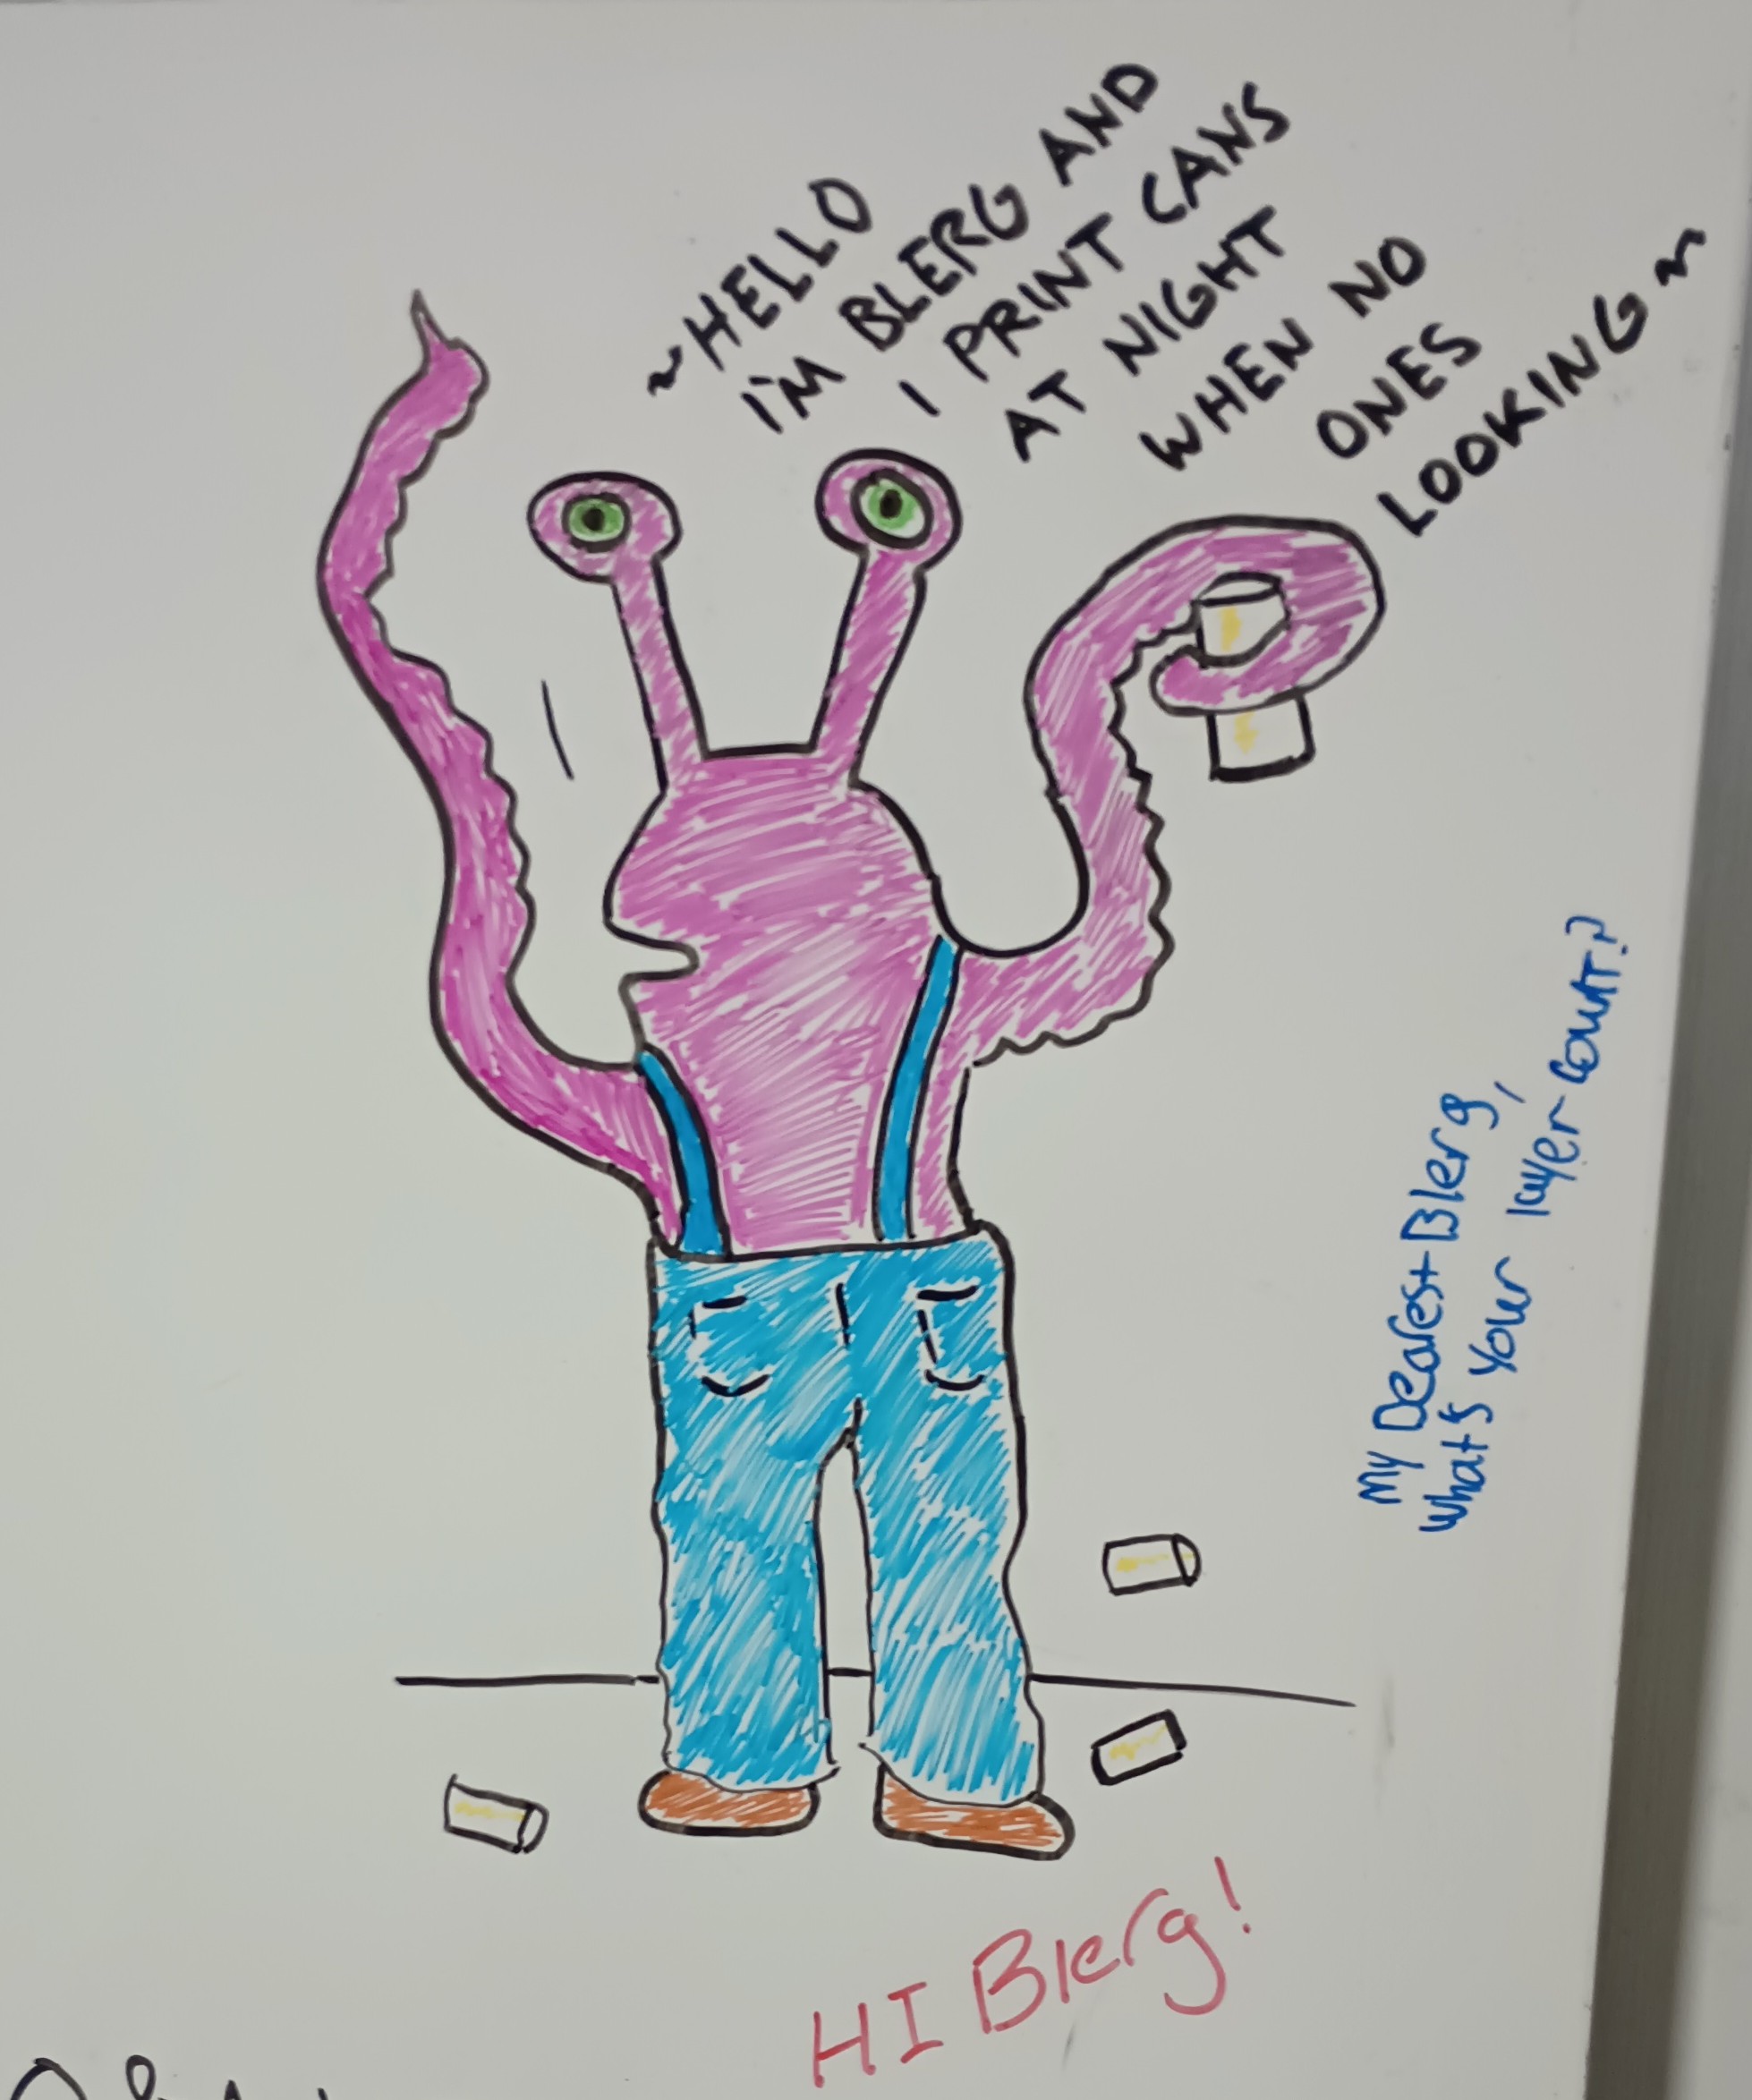 ~HELLO
I'M BLERG AND
I PRINT CANS
AT NIGHT
WHEN NO
ONES
LOOKING~
My Dearest Blerg,
What's your layer count?
HI Blerg!